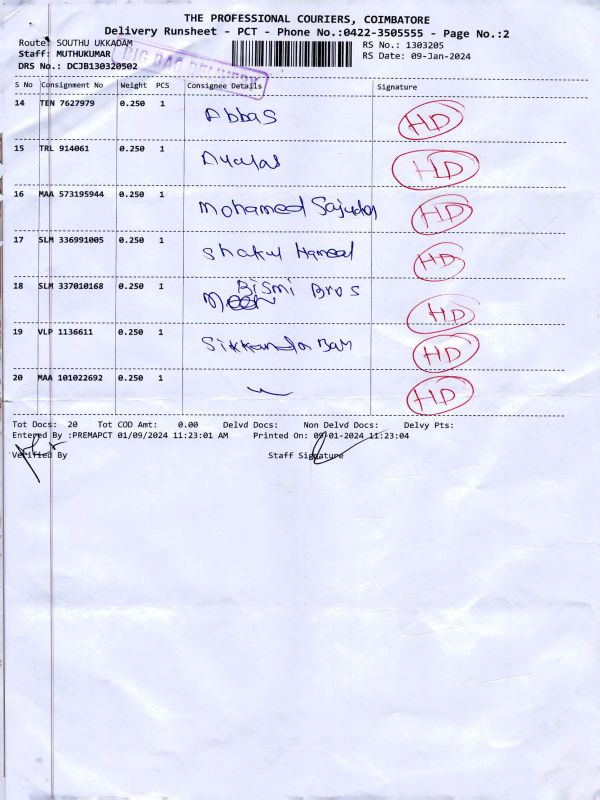 THE PROFESSIONAL COURIERS, COIMBATORE
Delivery Runsheet - PCT - Phone No.:0422-3505555 - Page No.:2
Route: SOUTHU UKKADAM RS No.: 1303205
Staff: MUTHUKUMAR RS Date: 09-Jan-2024
DRS No.: DCJB130320502
BIG BAG DELIVERY
S No Consignment No Weight PCS Consignee Details Signature
14 TEN 7627979 0.250 1 Abbas HD
15 TRL 914061 0.250 1 HD
16 MAA 573195944 0.250 1 Mohamed HD
17 SLM 336991005 0.250 1 Shakul Hameed HD
18 SLM 337010168 0.250 1 Bismi Bros HD
19 VLP 1136611 0.250 1 HD
20 MAA 101022692 0.250 1 HD
Tot Docs: 20 Tot COD Amt: 0.00 Delvd Docs: Non Delvd Docs: Delvy Pts:
Entered By :PREMAPCT 01/09/2024 11:23:01 AM Printed On: 09-01-2024 11:23:04
Verified By Staff Signature